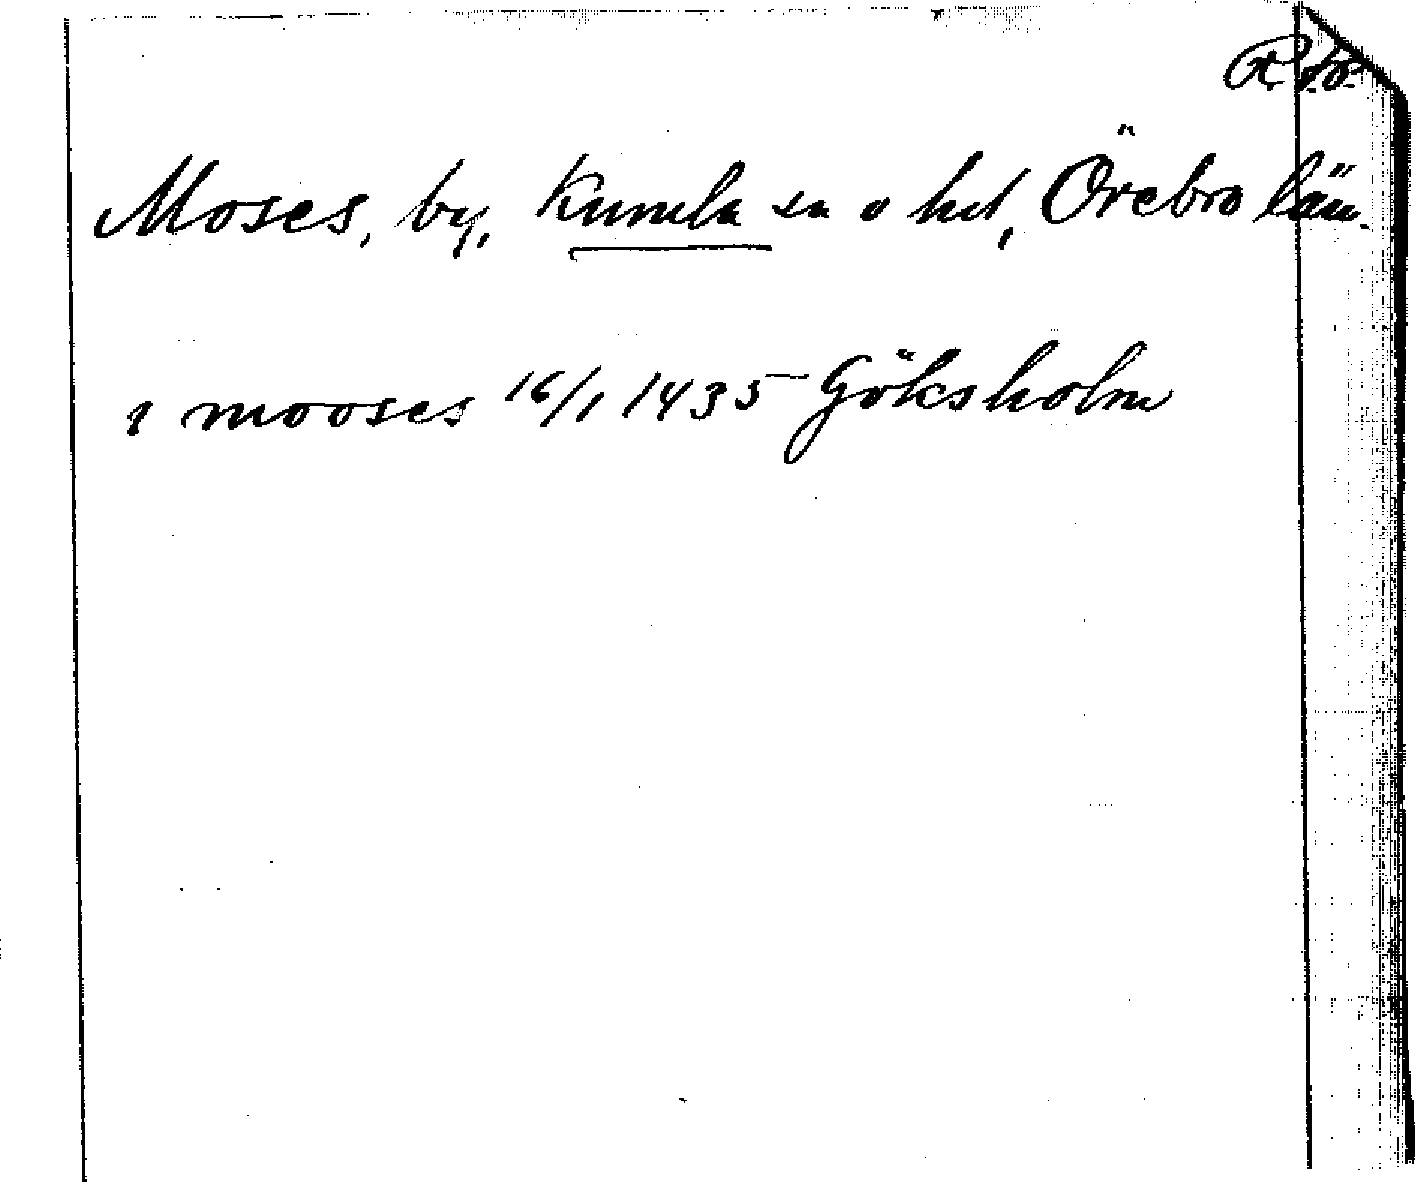 Moses, by, Kumla sn o hd, Örebro län.
i mooses 16/1 1435 Göksholm